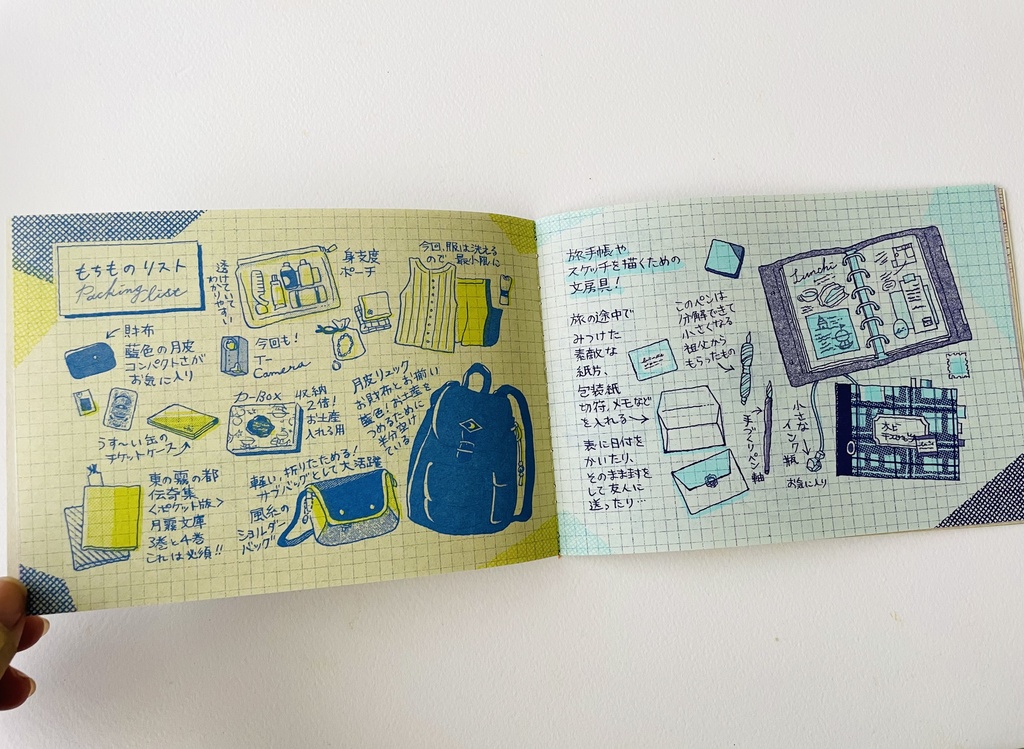 もちものリスト
Packing list
透けていて
わかりやすい
身支度
ポーチ
今回、服は洗える
ので最小限に
↙財布
藍色の月皮
コンパクトさが
お気に入り
今回も!
T-
Camera
うすーい缶の
チケットケース↗
カーBOX
収納
2倍!
お土産
入れる用
月皮リュック
お財布とお揃い
藍色。お土産を
つめるために
半分空けて
いる
東の霧の都
伝奇集
<ポケット版>
月霧文庫
3巻と4巻
これは必須!!
軽い、折りたためる!
サブバッグとして大活躍
風糸の
ショルダー
バッグ
旅手帳や
スケッチを描くための
文房具!
旅の途中で
みつけた
素敵な
紙片、
包装紙
切符、メモなど
を入れる→
表に日付を
かいたり、
そのまま封を
して友人に
送ったり…
このペンは
分解できて
小さくなる
祖父から
もらったもの
手づくりペン軸
小さな
インク瓶
お気に入り
Lunch